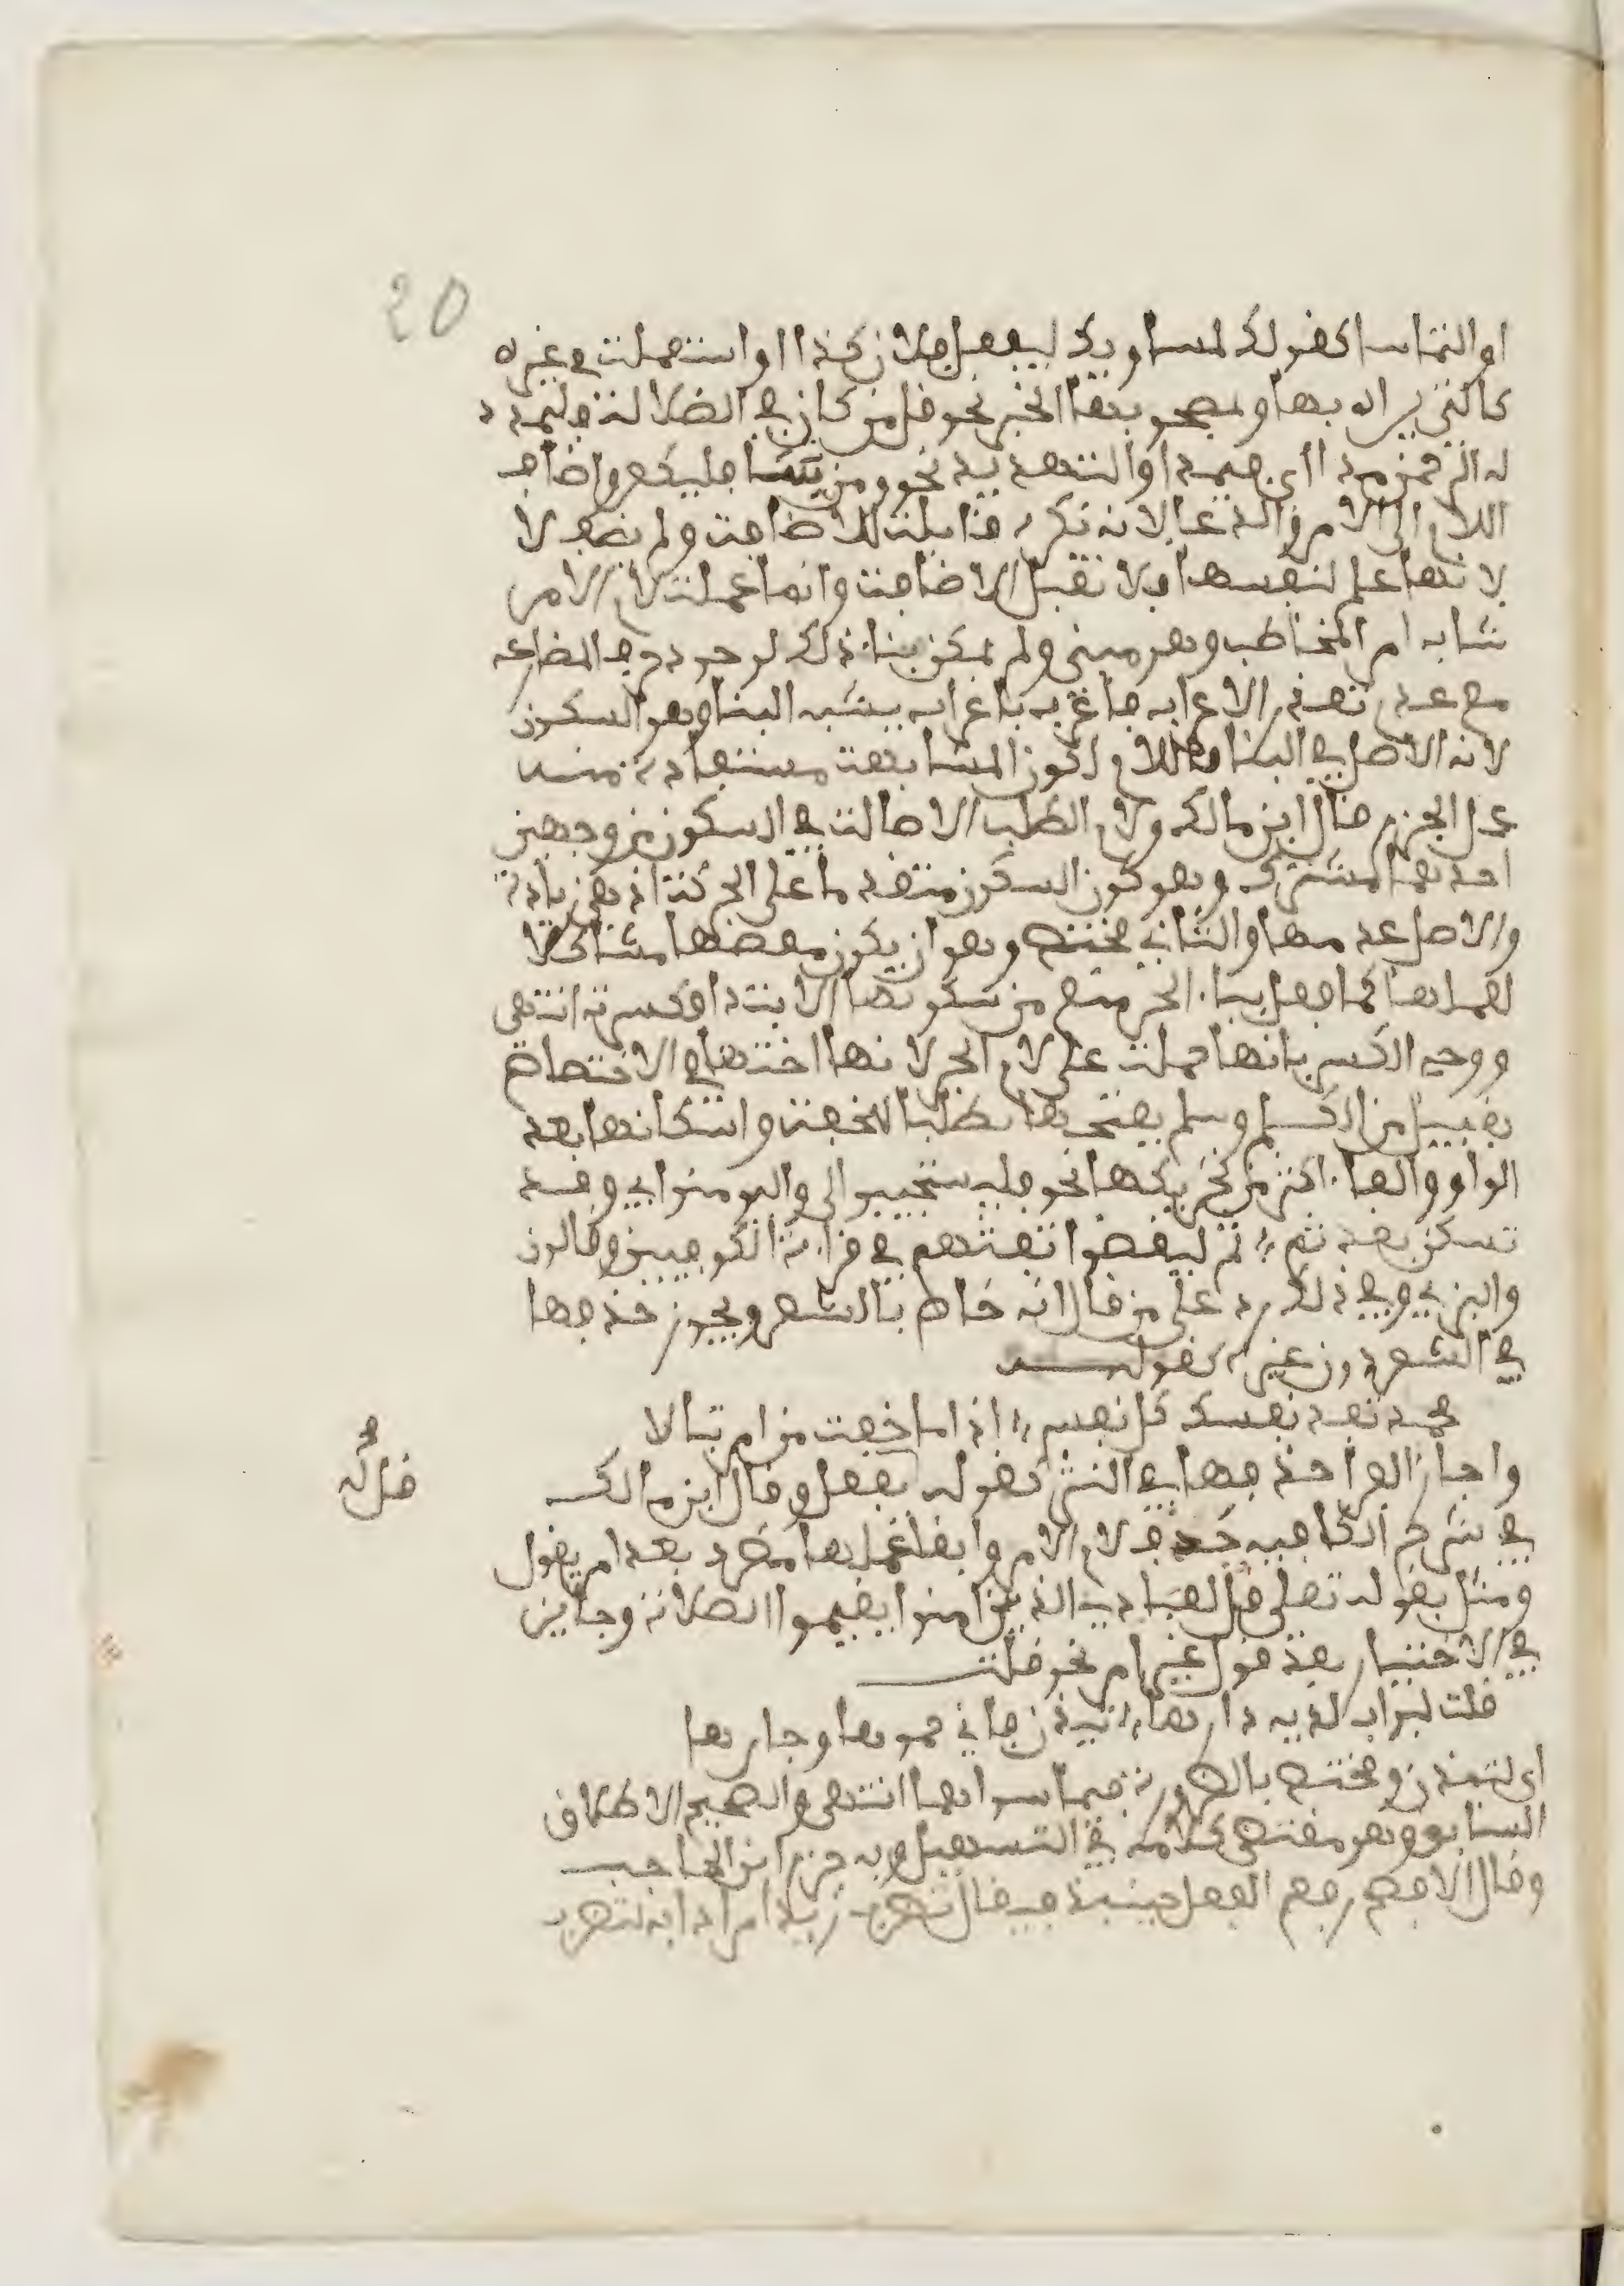 20
او التماسا كقولك لمساويك ليفعل فلان كذا او استعملت في غيره
كالتي يراد بها وبمصحوبها الخبر نحو قل من كان في الضلالة فليمدد
له الرحمن مدا اي فيمد او التهديد نحو ومن شا فليكفر واضاف
اللام الى الامر والدعا لانه نكرة قابلت للاضافة ولم يضف لا
لانها علم لنفسها فلا تقبل الاضافة وانما عملت لام الامر
شابه امر المخاطب وهو مبني ولم يمكن بناء ذلك لوجود حرف المضارعه
مع عدم تعذر الاعراب فاعرب باعراب يشبه البنا وهو السكون
لانه الاصل في البنا واللام لكون المشابهة مستفادة منه
عمل الجزم قال ابن مالك ولام الطلب الاصالة في السكون من وجهين
احدهما مشترك وهو كون السكون متقدما على الحركة اذ هي زيادة
والاصل عدمها والثاني مختص وهو ان يكون لفظها مشاكلا
لعملها كما فعل ببا الجر منع من سكونها الابتدا فكسرت انتهى
ووجه الكسر بانها حملت على لام الجر لانها اختها في الاختصاص
بقبيل من الكلم وسليم يفتحها طلبا للخفة واسكانها بعد
الواو والفا اكثر من تحريكها نحو فليستجيبوا لي وليومنوا بي وقد
تسكن بعد ثم ثم ليقضوا تفثهم في قراءة الكوفيين وقالون
والبزي وفي ذلك رد على من قال انه خاص بالشعر ويجوز حذفها
في الشعر دون غيره كقوله
محمد تفد نفسك كل نفس اذا ما خفت من امر تبالا
واجاز الفرا حذفها في النثر كقوله يفعل وقال ابن مالك
قل له
في شرح الكافيه حذف لام الامر وابقا عملها مطرد بعد امر بقول
ومثل بقوله تعلى قل لعبادي الذين امنوا يقيموا الصلاة وجايز
في الاختيار بعد قول غير امر نحو قلت
قلت لبواب لديه دارها تيذن فاني حموها وجارها
اي لتيذن ومختص بالضرورة فيما سواهما انتهى والصحيح الاطلاق
السابق وهو مقتضى كلامه في التسهيل وبه جزم ابن الحاجب
وقال الافصح رفع الفعل حينئذ فيقال تضرب زيدا مرادا به لتضرب